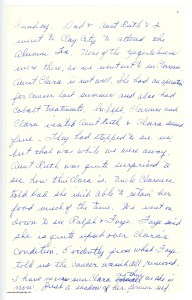 Sunday Dad & Aunt Ruth & I
went to Clay City to attend the
Alumni Tea. None of the
were there, so we went out to see
Aunt Clara is not well. She had an operation
for cancer last summer and also had
Cobalt treatments. Clarence and
Clara visited Aunt Ruth & Clara seemed
fine. They had stopped to see us,
but that was while we were away.
Aunt Ruth was quite surprised to
see how thin Clara is. Uncle Clarence
told Dad she isn't able to retain her
food much of the time. We went on
down to see Ralph & Faye. Faye said
she is quite upset over Clara's
Condition. Evidently from what Faye
told us the cancer wasn't all removed.
I have never seen Clara as she is
now. Just a shadow of her former self